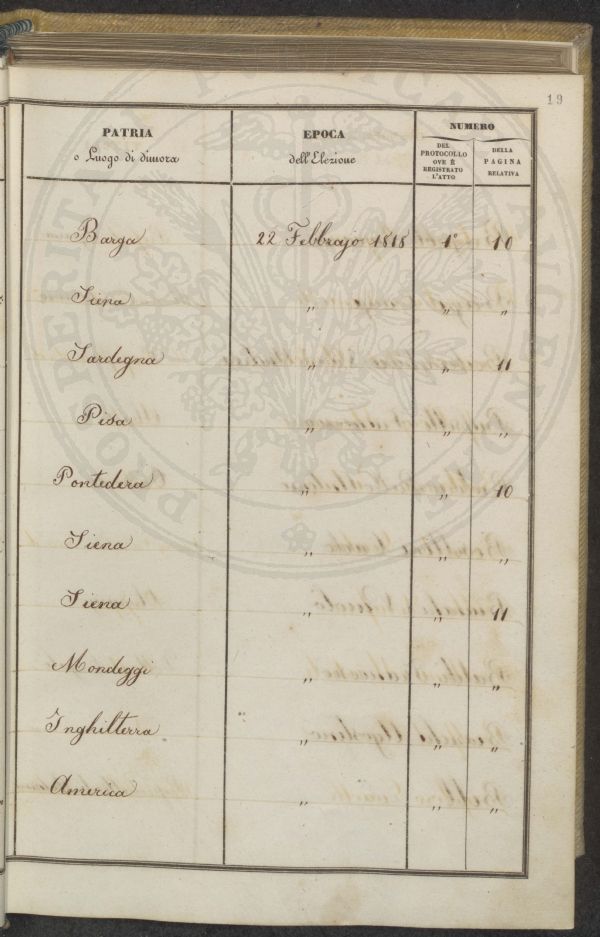 19
PATRIA
o Luogo di dimora
EPOCA
dell'Elezione
NUMERO
DEL
PROTOCOLLO
OVE È
REGISTRATO
L'ATTO
DELLA
PAGINA
RELATIVA
Barga 22 Febbrajo 1818 1° 10
Siena " " "
Sardegna " " 11
Pisa " " "
Pontedera " " 10
Siena " " "
Siena " " 11
Mondeggi " " "
Inghilterra " " "
America " " "